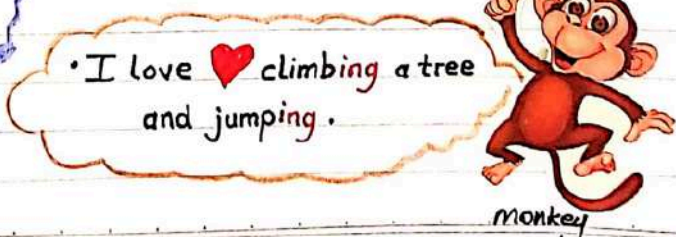 • I love ❤ climbing a tree
and jumping.
monkey